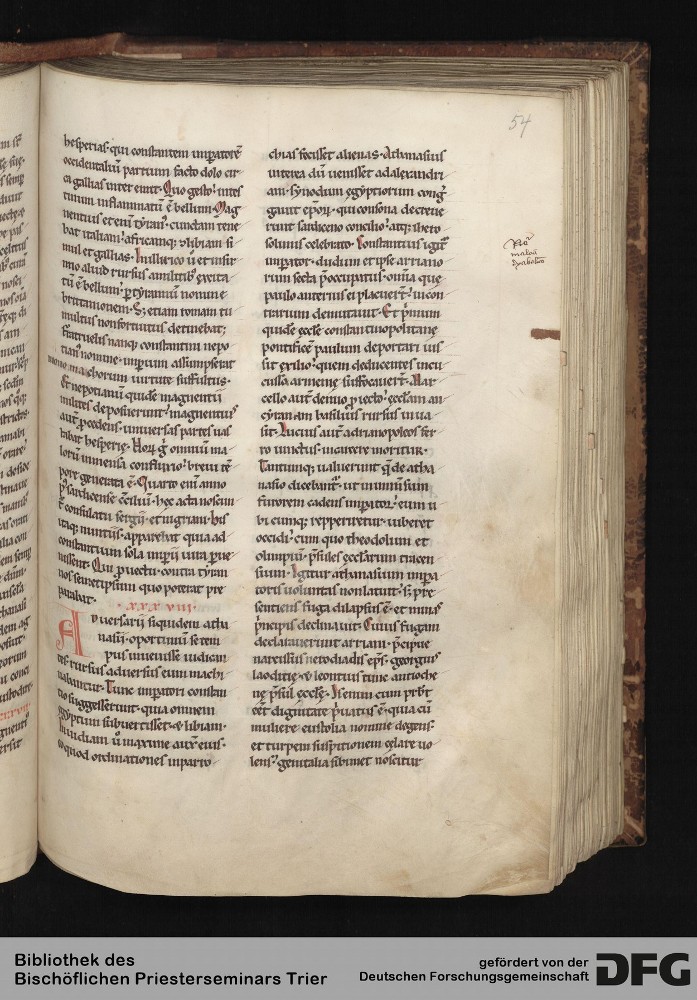 54
hesperias· qui constantem imꝑatorē
occidentaliū partium facto dolo cir
ca gallias interemit· Quo gesto· intes
tinum inflammatū ē bellum· Mag
nentius et eni tyrañ· cunctam tene
bat italiam· africamq; & libiam· si
mul et gallias· Inillirico ū et insir
mio aliud rursus amilitib; excita
tū ē bellum· ꝑ tyrannum nomine
britannionem· S; etiam romam tu
multus nonfortuitus detinebat;
fr̄atruelis nanq; constantini nepo
tian' nomine· imperium assūmpserat
monomachorum uirtute suffultus·
Et nepotianū quidē magnentii
milites deposuerunt· magnentius
aut̄ ꝓcedens· uniuersas partes uas
tabat hesperię· Horū g̊ omnium ma
lorū immensa confluuio· breui tē
pore generata ē· Quarto eni anno
p' sardicense cc̄ilium· hęc acta noscun
t̄ consulatu sergii· et nigriani· his
itaq; nuntiis· apparebat quia ad
constantium sola imperii iura ꝑue
nissent· Qui ꝓuectus contra tyran
nos semetipsum quo poterat pre
parabat·
·XXXVIII·
Aduersarii siquidem atha
nasii· oportunū se tem
pus inuenisse iudican
tes· rursus aduersus eum machi
nabantur· Tunc imperatori constan
tio suggesserunt· quia omnem
ęgyptum subuertisset· & libiam·
Inuidiam ū maxime aux̄ eius·
eoquod ordinationes inparro
chias fecisset alienas· Athanasius
interea dū uenisset adalexandri
am· synodum ęgyptiorum cong̃
gauit ep̄oꝝ· qui consona decreue
runt sardiceno concilio· atq; ihero
solimis celebrato· Constantius igit̄
imꝑator· dudum et ipse arriano
rum secta p̄occupatus· om̄ia quę
paulo anterius ei placuert̄· incon
trarium demutauit· Et p̄mum
quidē eccl̄e constantinopolitanę
pontificē paulum deportari ius
sit exilio· quem deducentes incu
cusso armenię suffocauert̄· Mar
cello aut̄ denuo ꝓiecto· eccl̄iam an
cyranam basilius rursus inua
sit· Lucius aut̄ adrianopoleos fer
ro uinctus· incarcere moritur·
Tantumq; ualuerunt q̄ de atha
nasio dicebant̄· ut inimmensum
furorem cadens imꝑator· eum u
bicumq; reppeриretur· iuberet
occidi· cum quo theodolum et
olimpiū· p̄sules eccl̄arum tracen
sium· Igitur athanasium impa
toris uoluntas nonlatuit· s; pre
sentiens· fuga dilapsus ē· et minis
p̄ncipis declinauit· Cuius fugam
declamauerunt arriani· p̄cipue
narcissus neroniadis ep̄s· georgius
laodicię· & leontius tunc antioche
nę p̄sul eccl̄ę· Is enim cum prbr̄
eēt· dignitate p̄uatus ē· quia cū
muliere eustolia nomine degens·
et turpem suspitionem cęlare uo
lens· genitalia sibimet noscitur
Bibliothek des
Bischöflichen Priesterseminars Trier
gefördert von der
Deutschen Forschungsgemeinschaft
DFG